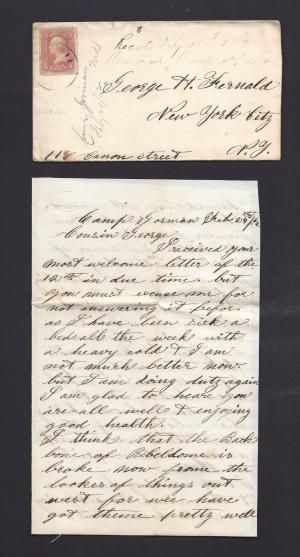 Recd
Camp Gorman
George H. Fernald
New York City
118 Canon Street
N. Y.
Camp Gorman Feb
Cousin George
I received your
most welcome letter of the
12th in due time. but
you must excuse me for
not answering it befor
as I have been sick a
bed all the week with
a heavy cold & I am
not much better now.
but I am doing duty again
I am glad to hear you
are all well & enjoying
good health.
I think that the Back
bone of Rebeldome is
broke now frome the
lookes of things out
west for wee have
got theme pretty well